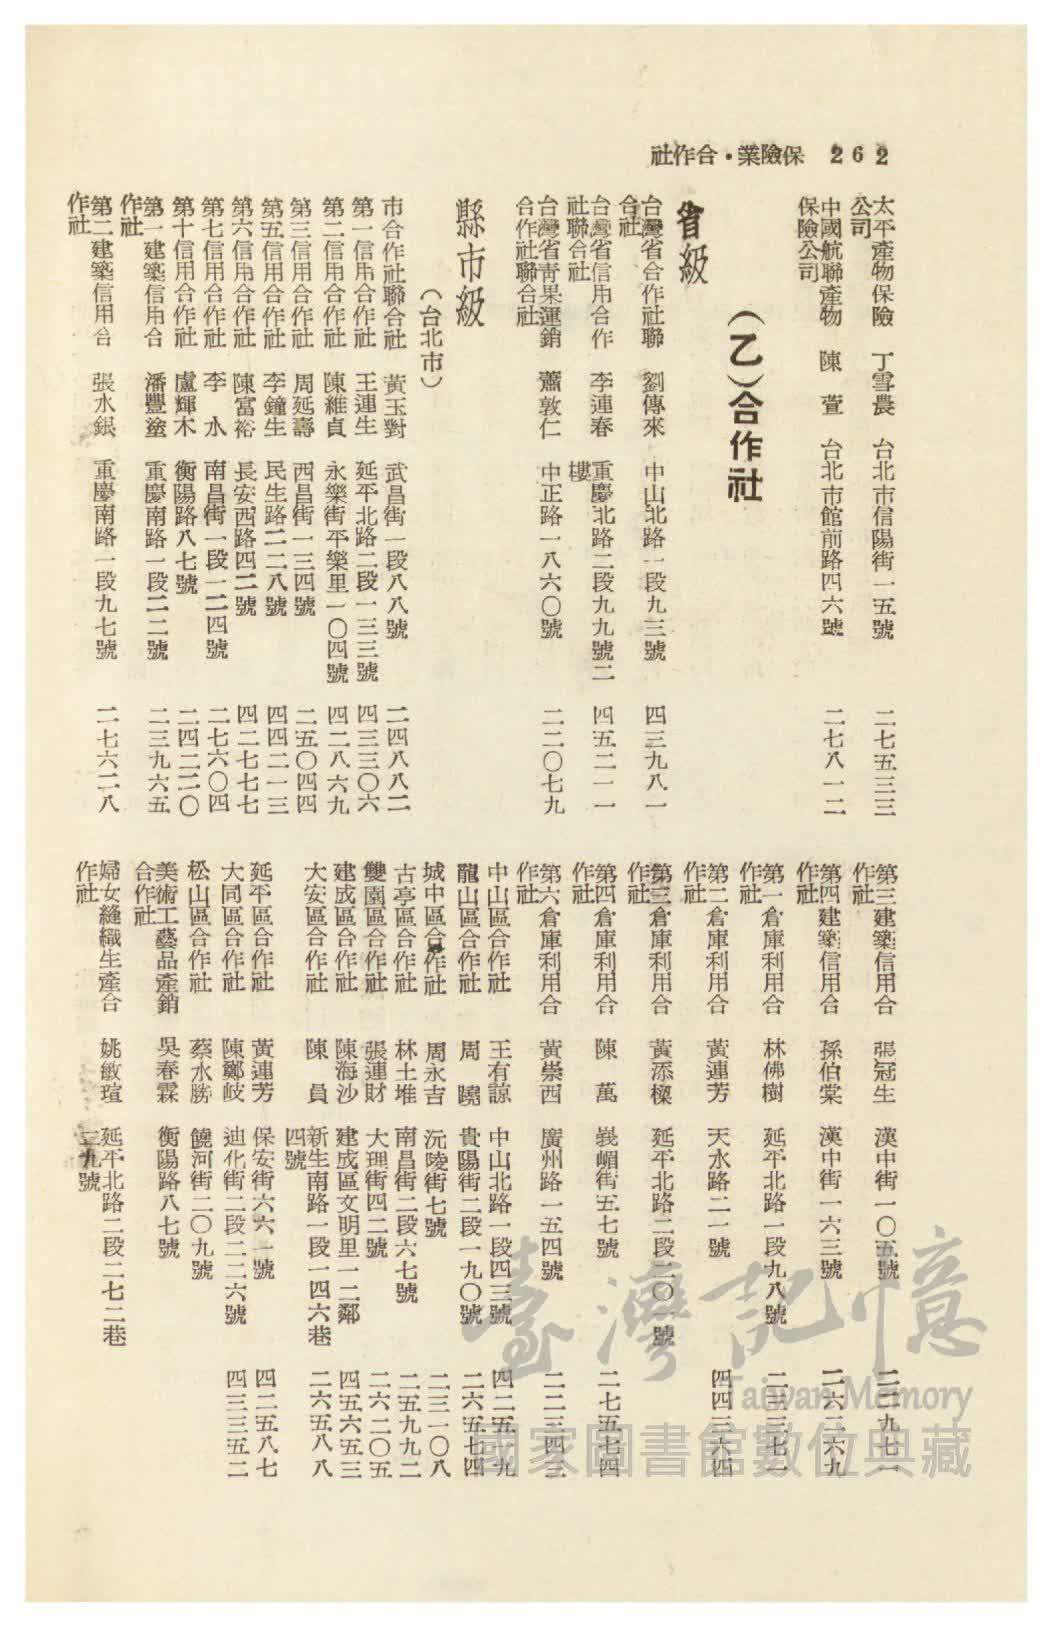 262 保險業·合作社
太平產物保險公司 丁雪農 台北市信陽街一五號 二七五三三
中國航聯產物保險公司 陳萱 台北市館前路四六號 二七八一二
(乙)合作社
省級
台灣省合作社聯合社 劉傳來 中山北路一段九三號 四三九八一
台灣省信用合作社聯合社 李連春 重慶北路二段九九號二樓 四五二一一
台灣省靑果運銷合作社聯合社 蕭敦仁 中正路一八六〇號 二二〇七九
縣市級
(台北市)
市合作社聯合社 黃玉對 武昌街一段八八號 二四八八二
第一信用合作社 王連生 延平北路二段一三三號 四三三〇六
第二信用合作社 陳維貞 永樂街平樂里一〇四號 四二八六九
第三信用合作社 周延壽 西昌街一三四號 二五〇四四
第五信用合作社 李鐘生 民生路二二八號 四四二一三
第六信用合作社 陳富裕 長安西路四二號 四二七七七
第七信用合作社 李永 南昌街一段一二四號 二七六〇四
第十信用合作社 盧輝木 衡陽路八七號 二四二二〇
第一建築信用合作社 潘豐塗 重慶南路一段二二號 二三九六五
第二建築信用合作社 張水銀 重慶南路一段九七號 二七六二八
第三建築信用合作社 張冠生 漢中街一〇五號 二二九七一
第四建築信用合作社 孫伯棠 漢中街一六三號 二六二六九
第一倉庫利用合作社 林佛樹 延平北路一段九八號 二三三七一
第二倉庫利用合作社 黃連芳 天水路二一號 四四三六四
第三倉庫利用合作社 黃添樑 延平北路二段二〇一號
第四倉庫利用合作社 陳萬 峩嵋街五七號 二七五七四
第六倉庫利用合作社 黃崇西 廣州路一五四號 二二三四三
中山區合作社 王有諒 中山北路一段四三號 四二五一九
龍山區合作社 周曉 貴陽街二段一九〇號 二六五七四
城中區合作社 周永吉 沅陵街七號 二三一〇八
古亭區合作社 林土堆 南昌街二段六七號 二五九九二
雙園區合作社 張連財 大理街四二號 二六二〇五
建成區合作社 陳海沙 建成區文明里一二鄰 四五六五三
大安區合作社 陳員 新生南路一段一四六巷四號 二六五八八
延平區合作社 黃連芳 保安街六六一號 四二五八七
大同區合作社 陳鄭岐 迪化街二段二二六號 四三三五二
松山區合作社 蔡水勝 饒河街二〇九號
美術工藝品產銷合作社 吳春霖 衡陽路八七號
婦女縫織生產合作社 姚敏瑄 延平北路二段二七二巷二九號
臺灣記憶
Taiwan Memory
國家圖書館數位典藏